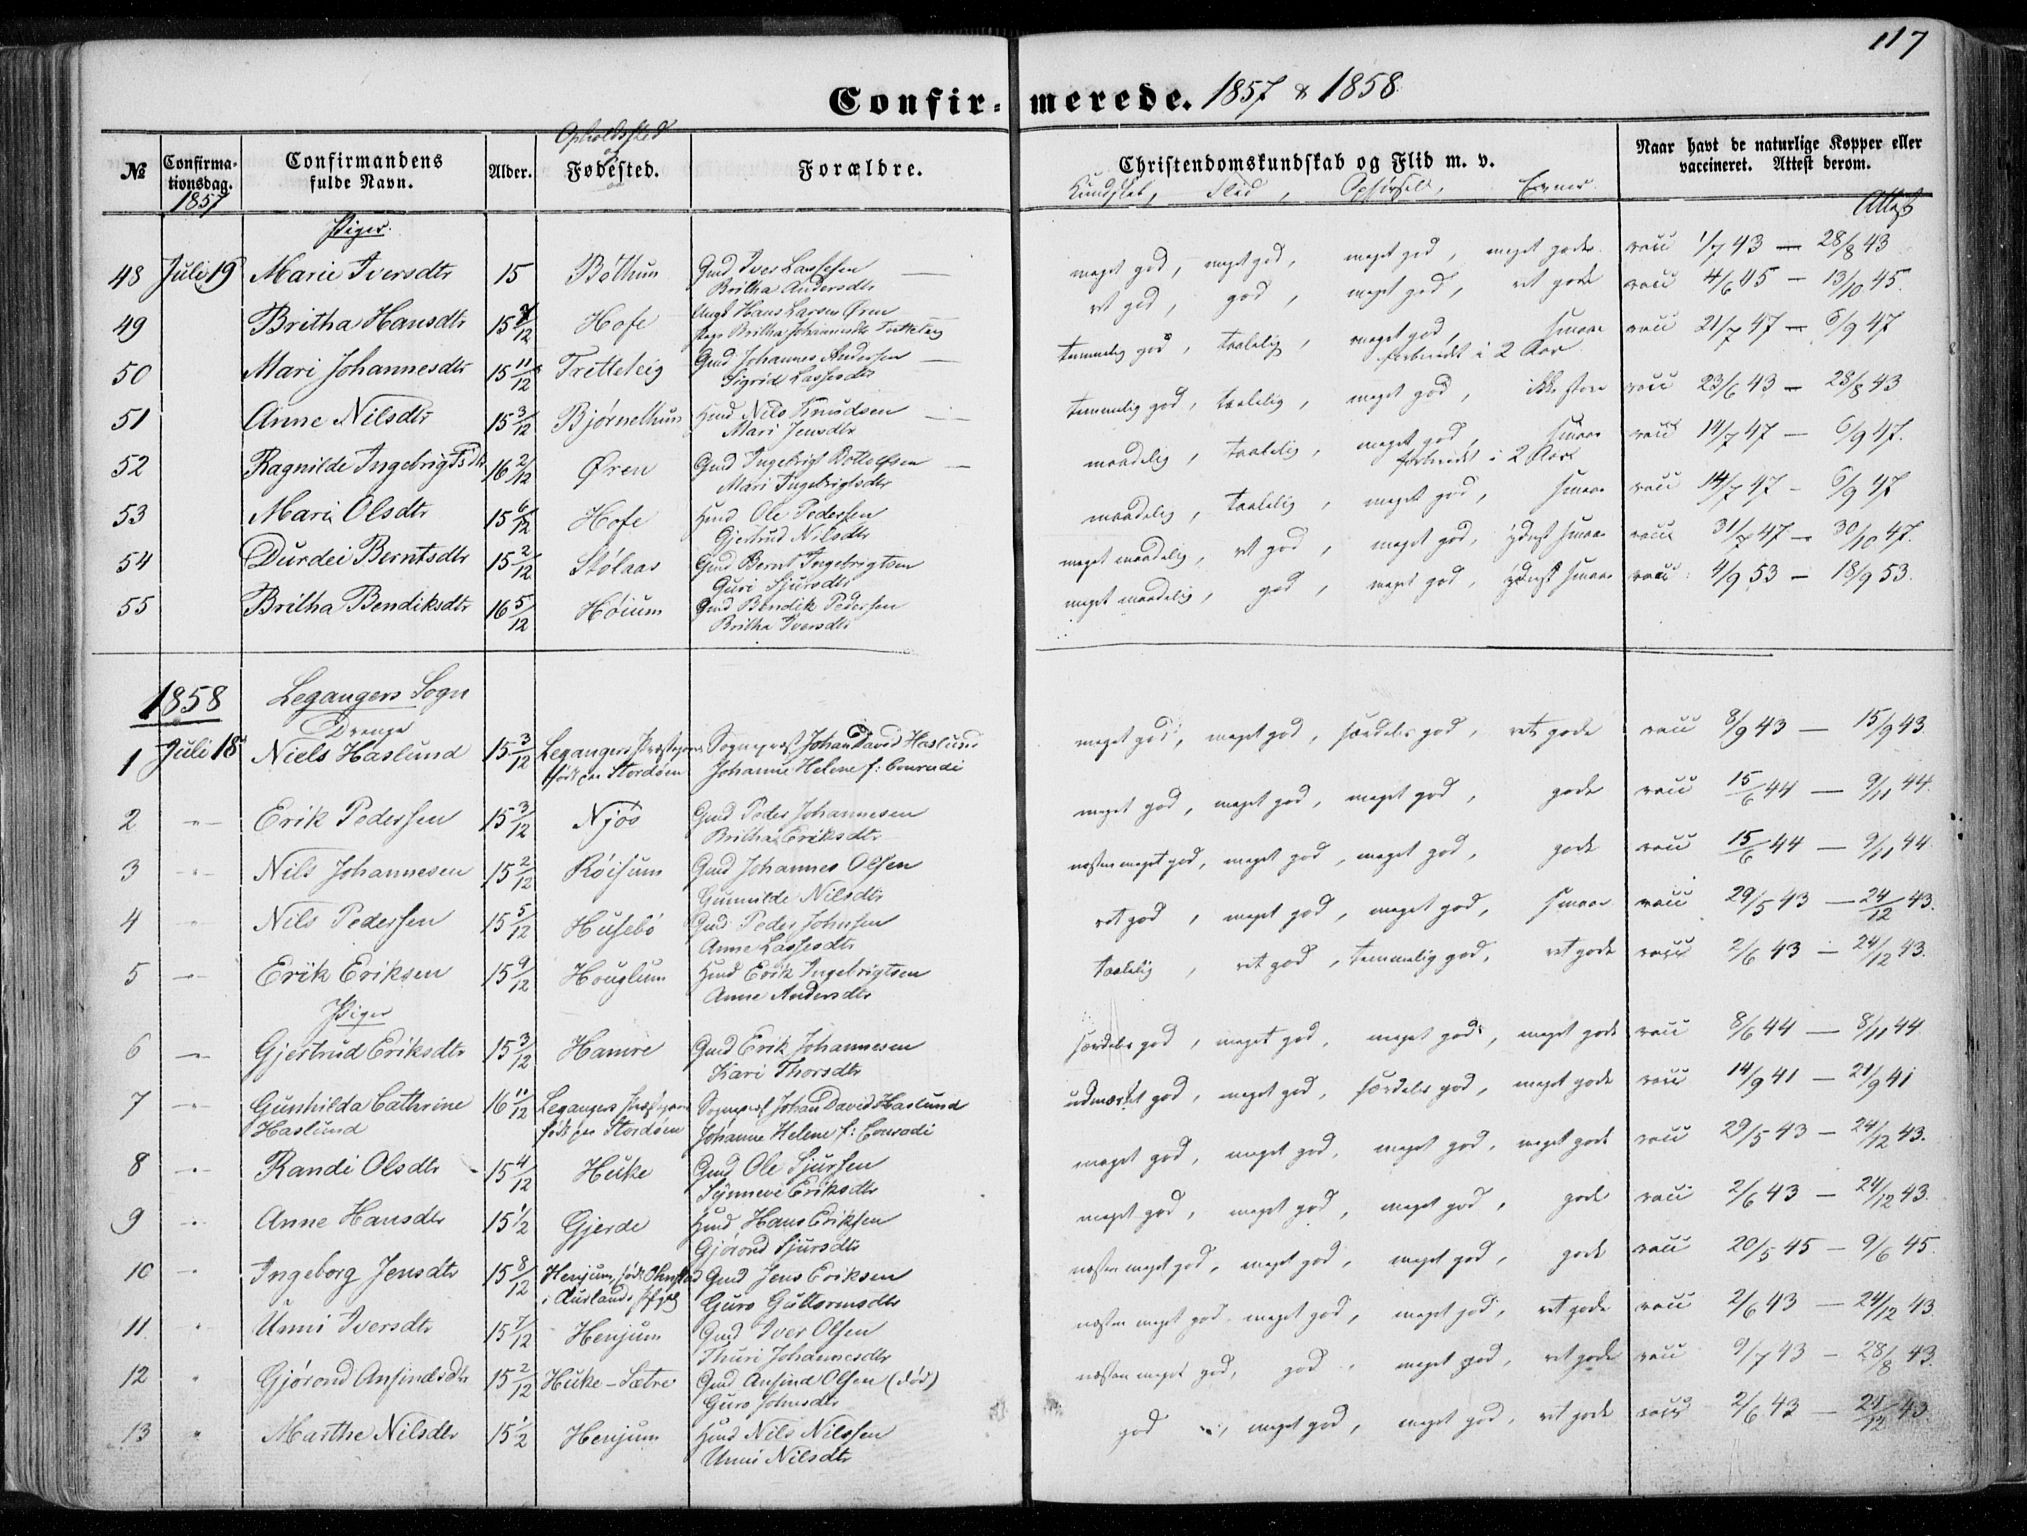 117
Confirmerede. 1857 & 1858
№ Confirmationsdag. 1857 Confirmandens fulde Navn. Alder. Opholdssted og Fødested. Forældre. Christendomskundskab og Flid m. v. Naar havt de naturlige Kopper eller vaccineret. Attest derom.
Kundskab, Flid, Opførsel, Evner Attest
Piger.
48 Juli 19 Marie Iversdtr 15 Bøthun Gmd Iver Lassesen meget god, meget god, meget god, meget gode vacc 1/7 43 — 28/8 43
Britha Andersdtr
49 Britha Hansdtr 15 Hofe Hans Larsen Øren ret god, god, meget god, ret gode vacc 4/6 45 – 13/10 45.
Britha Johannesdtr Tretteteig
50 Mari Johannesdtr 15 11/12 Tretteteig Gmd Johannes Andersen temmelig god, taalelig, meget god, smaae vacc 21/7 47 – 6/9 47
Sigrid Lassesdtr forberedet i 2 Aar
51 Anne Nilsdtr 15 3/12 Bjørnethun Hmd Nils Knudsen temmelig god, taalelig, meget god, ikke store vacc 23/6 43 – 28/8 43
Mari Jensdtr
52 Ragnilde Ingebrigtsdtr 16 2/12 Øren Gmd Ingebrigt Botolfsen maadelig, taalelig, meget god, smaae vacc 14/7 47 — 6/9 47.
Mari Ingebrigtsdtr forberedet i 2 Aar
53 Mari Olsdtr 15 6/12 Hofe Hmd Ole Pedersen maadelig, taalelig, meget god, smaae vacc 14/7 47 – 6/9 47
Gjertrud Nilsdtr
54 Durdei Berntsdtr 15 2/12 Stølaas Gmd Bernt Ingebrigtsen meget maadelig, ret god, meget god, yderst smaae vacc 31/7 47 – 30/10 47.
Guri Sjursdtr
55 Britha Bendiksdtr 16 5/12 Høium Gmd Bendik Pedersen meget maadelig, god, meget god, yderst smaae vacc 4/9 53 – 18/9 53.
Britha Iversdtr
1858 Legangers Sogn
Drenge
1 Juli 18 Niels Haslund 15 3/12 Legangers Præstegaard Sognepræst Johan David Haslund meget god, meget god, særdeles god, ret gode vacc 8/9 43 — 15/9 43.
født paa Stordøen Johanne Helene f: Conradi
2 -"- Erik Pedersen 15 3/12 Njøs Gmd Peder Johannesen meget god, meget god, meget god, gode vacc 15/6 44 — 9/11 44.
Britha Eriksdtr
3 -"- Nils Johannesen 15 2/12 Røisum Gmd Johannes Olsen næsten meget god, meget god, meget god, gode vacc 15/6 44 — 9/11 44
Gunnilde Nilsdtr
4 " Nils Pedersen 15 5/12 Husebø Gmd Peder Johnsen ret god, meget god, meget god, smaae vacc 29/5 43 — 24/12 43.
Anne Lassesdtr
5 -"- Erik Eriksen 15 9/12 Houglum Hmd Erik Ingebrigtsen taalelig, ret god, temmelig god, ret gode vacc 2/6 43 – 24/12 43.
Anne Andersdtr
Piger
6 -"- Gjertrud Eriksdtr 15 3/12 Hamre Gmd Erik Johannesen særdeles god, meget god, meget god, meget gode vacc 8/6 44 — 8/11 44.
Kari Thorsdtr
7 -"- Gunhilda Cathrine 16 11/12 Legangers Præstegaard Sognepræst Johan David Haslund udmærket god, meget god, særdeles god, meget gode vacc 14/9 41 – 21/9 41
Haslund født paa Stordøen Johanne Helene f: Conradi
8 -"- Randi Olsdtr 15 4/12 Huke Gmd Ole Sjursen meget god, meget god, meget god, meget gode vacc 29/5 43 – 24/12 43.
Synnevi Eriksdtr
9 -"- Anne Hansdtr 15 1/2 Gjerde Hmd Hans Eriksen meget god, meget god, meget god, gode vacc 2/6 43 – 24/12 43.
Gjørond Sjursdtr
10 " Ingeborg Jensdtr 15 8/12 Henjum, født Ohnstad Gmd Jens Eriksen næsten meget god, meget god, meget god, gode vacc 20/5 45 – 9/6 45.
i Aurlands Guro Guttormsdtr
11 " Unni Iversdtr 15 7/12 Henjum Gmd Iver Olsen næsten meget god, meget god, meget god, ret gode vacc 2/6 43 — 24/12 43
Thuri Johannesdtr
12 " Gjørond Ansindsdtr 15 2/12 Huke-Sætre Gmd Ansind Olsen (død) næsten meget god, god, meget god, ret gode vacc 9/7 43 – 28/8 43.
Guro Johnsdtr
13 " Marthe Nilsdtr 15 1/2 Henjum Hmd Nils Nilssen god, meget god, meget god, ret gode vacc 2/6 43 – 24/12 43
Unni Nilsdtr